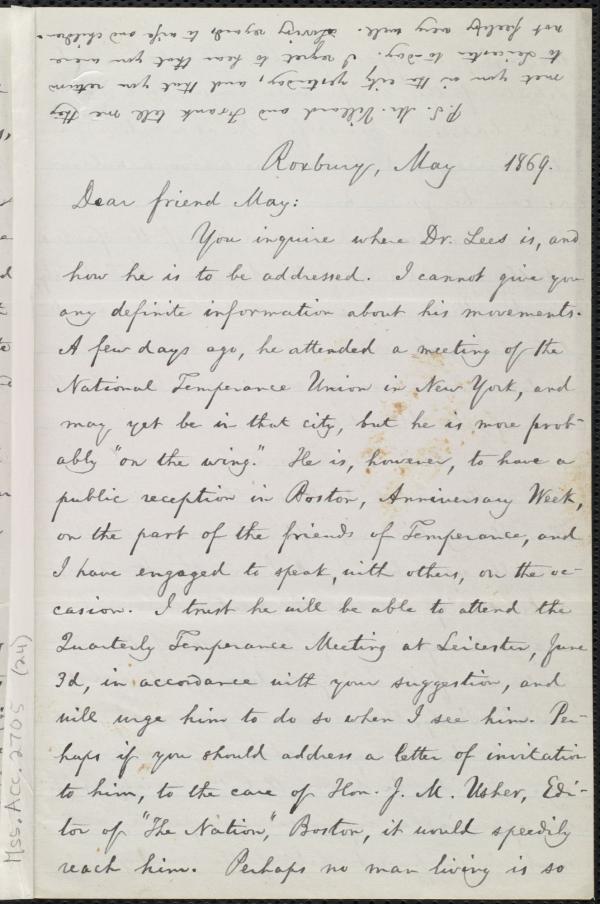 P.S. Mr. Villard and Frank tell me they
met you in the city yesterday, and that you return
to Leicester to-day. I regret to hear that you were
not feeling very well. Loving regards to wife and children.
Roxbury, May 1869.
Dear friend May:
You inquire where Dr. Lees is, and
how he is to be addressed. I cannot give you
any definite information about his movements.
A few days ago, he attended a meeting of the
National Temperance Union in New York, and
may yet be in that city, but he is more prob-
ably "on the wing." He is, however, to have a
public reception in Boston, Anniversary Week,
on the part of the friends of Temperance, and
I have engaged to speak, with others, on the oc-
casion. I trust he will be able to attend the
Quarterly Temperance Meeting at Leicester, June
3d, in accordance with your suggestion, and
will urge him to do so when I see him. Per-
haps if you should address a letter of invitation
to him, to the care of Hon. J. M. Usher, Edi-
tor of "The Nation," Boston, it would speedily
reach him. Perhaps no man living is so
Mss. Acc. 2705 (24)